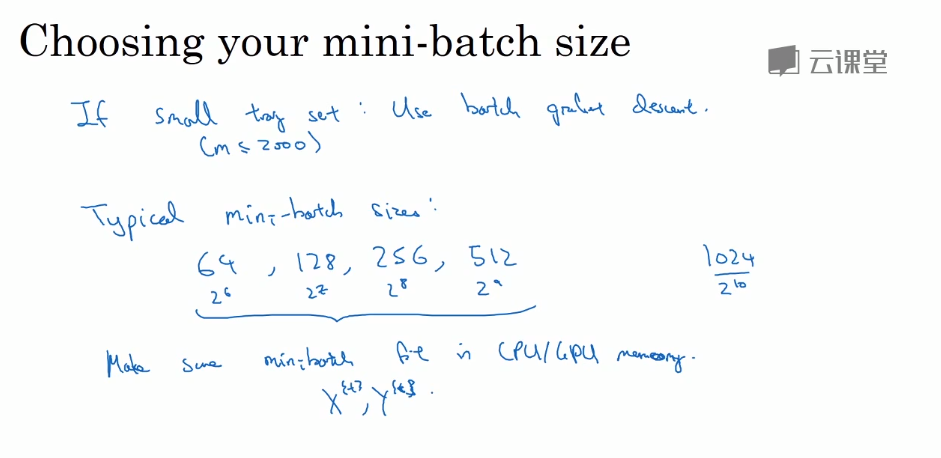 Choosing your mini-batch size
云课堂
If small trag set : Use batch gradient descent.
(m ≤ 2000)
Typical mini-batch sizes:
64 , 128, 256, 512
2⁶ 2⁷ 2⁸ 2⁹
1024
2¹⁰
Make sure minibatch fit in CPU/GPU memory.
X^{t}, Y^{t}.